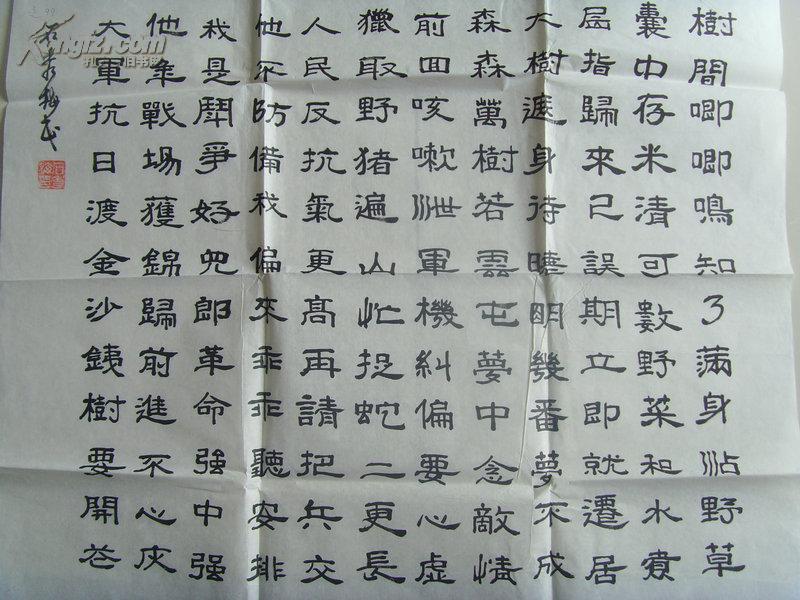 樹間唧唧鳴知了滿身沾野草
囊中存米清可數野菜和水煮
屈指歸來已誤期立即就遷居
大樹遮身待曉明幾番夢不成
森森萬樹若雲屯夢中念敵情
前回咳嗽泄軍機糾偏要心虛
獵取野猪遍山忙捉蛇二更長
人民反抗氣更高再請把兵交
他不防備我偏來乖乖聽安排
我是鬭爭好兒郎革命強中强
他年戰場獲錦歸前進不心灰
大軍抗日渡金沙銕樹要開花